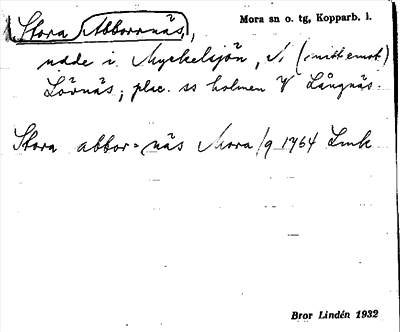 Stora Abborrnäs, Mora sn o. tg, Kopparb. l.
udde i Myckelsjön, N (mitt emot)
Lövnäs; plac. ss holmen V Långnäs.
Stora abbor=näs Mora /9 1764 Lmk
Bror Lindén 1932